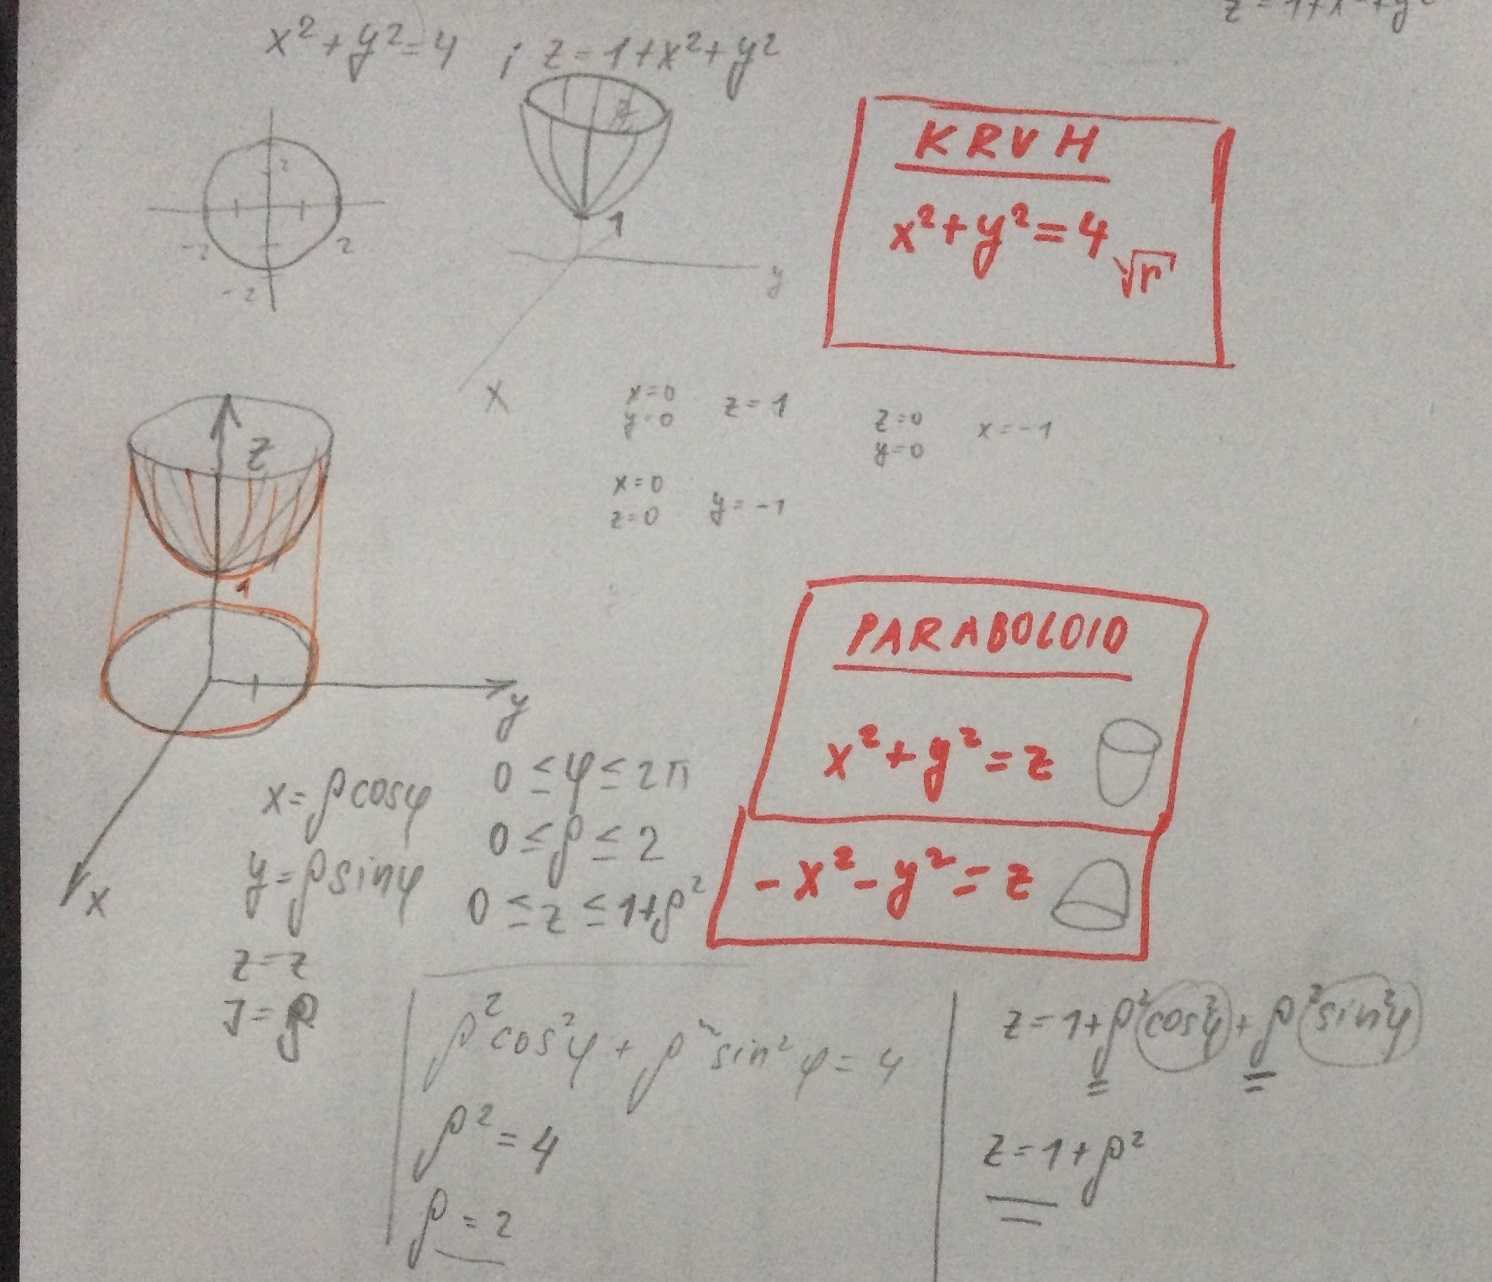 z=1+x²+y²
x²+y²=4 ; z=1+x²+y²
2
-2 2
-2
z
1
y
x
KRUH
x²+y²=4
√r
x=0
y=0
z=1
z=0
y=0
x=-1
x=0
z=0
y=-1
z
1
y
x
PARABOLOID
x²+y²=z
-x²-y²=z
x=ρcosφ
y=ρsinφ
z=z
J=ρ
0≤φ≤2π
0≤ρ≤2
0≤z≤1+ρ²
ρ²cos²φ+ρ²sin²φ=4
ρ²=4
ρ=2
z=1+ρ²cos²φ+ρ²sin²φ
z=1+ρ²